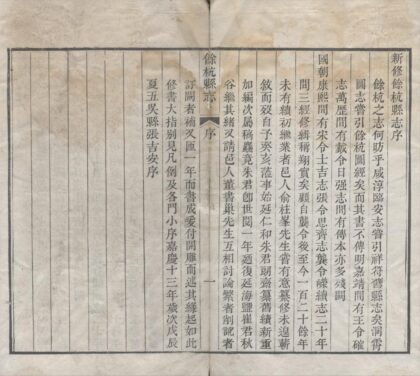 新修餘杭縣志序
餘杭之志何昉乎咸淳臨安志嘗引祥符舊縣志矣洞霄
圖志嘗引餘杭圖經矣而其書不傳明嘉靖間有王令確
志萬歷間有戴令日強志間有傳本亦多殘闕
國朝康熙間有宋令士吉志張令思齊志龔令嶸續志二十年
間三經修緝稱翔實矣顧自龔令後至今一百二十餘年
未有續初繼業者邑人俞杜峯先生嘗有意纂修未遑
敘而歿自予癸亥蒞事始延仁和朱君朗齋纂舊續新重
如編次屬稿麤竟朱君卽世閱一年迺復延海鹽崔君秋
谷繼其緒又請邑人董書巢先生互相討論繁者削記者
訂闕者補又匝一年而書成爰付開雕而述其緣起如此
修書大指別見凡例及各門小序嘉慶十三年歲次戊辰
夏五吳縣張吉安序
餘杭縣志
序
一